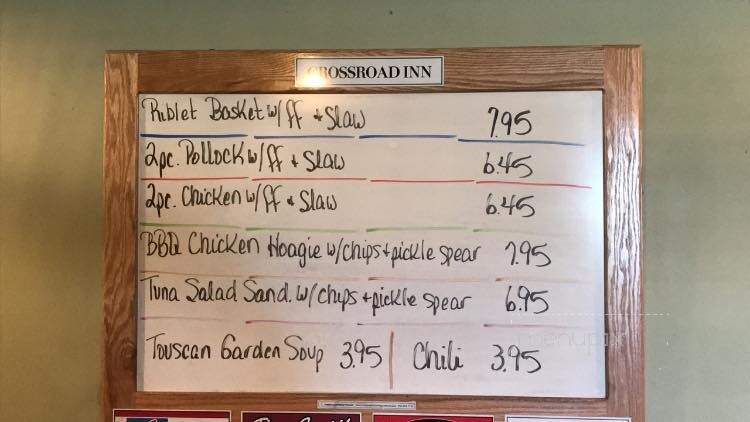 CROSSROAD INN
Riblet Basket w/ff + Slaw 7.95
2pc. Pollock w/ff + Slaw 6.45
2pc. Chicken w/ff + Slaw 6.45
BBQ Chicken Hoagie w/chips + pickle spear 7.95
Tuna Salad Sand. w/chips + pickle spear 6.95
Touscan Garden Soup 3.95 | Chili 3.95